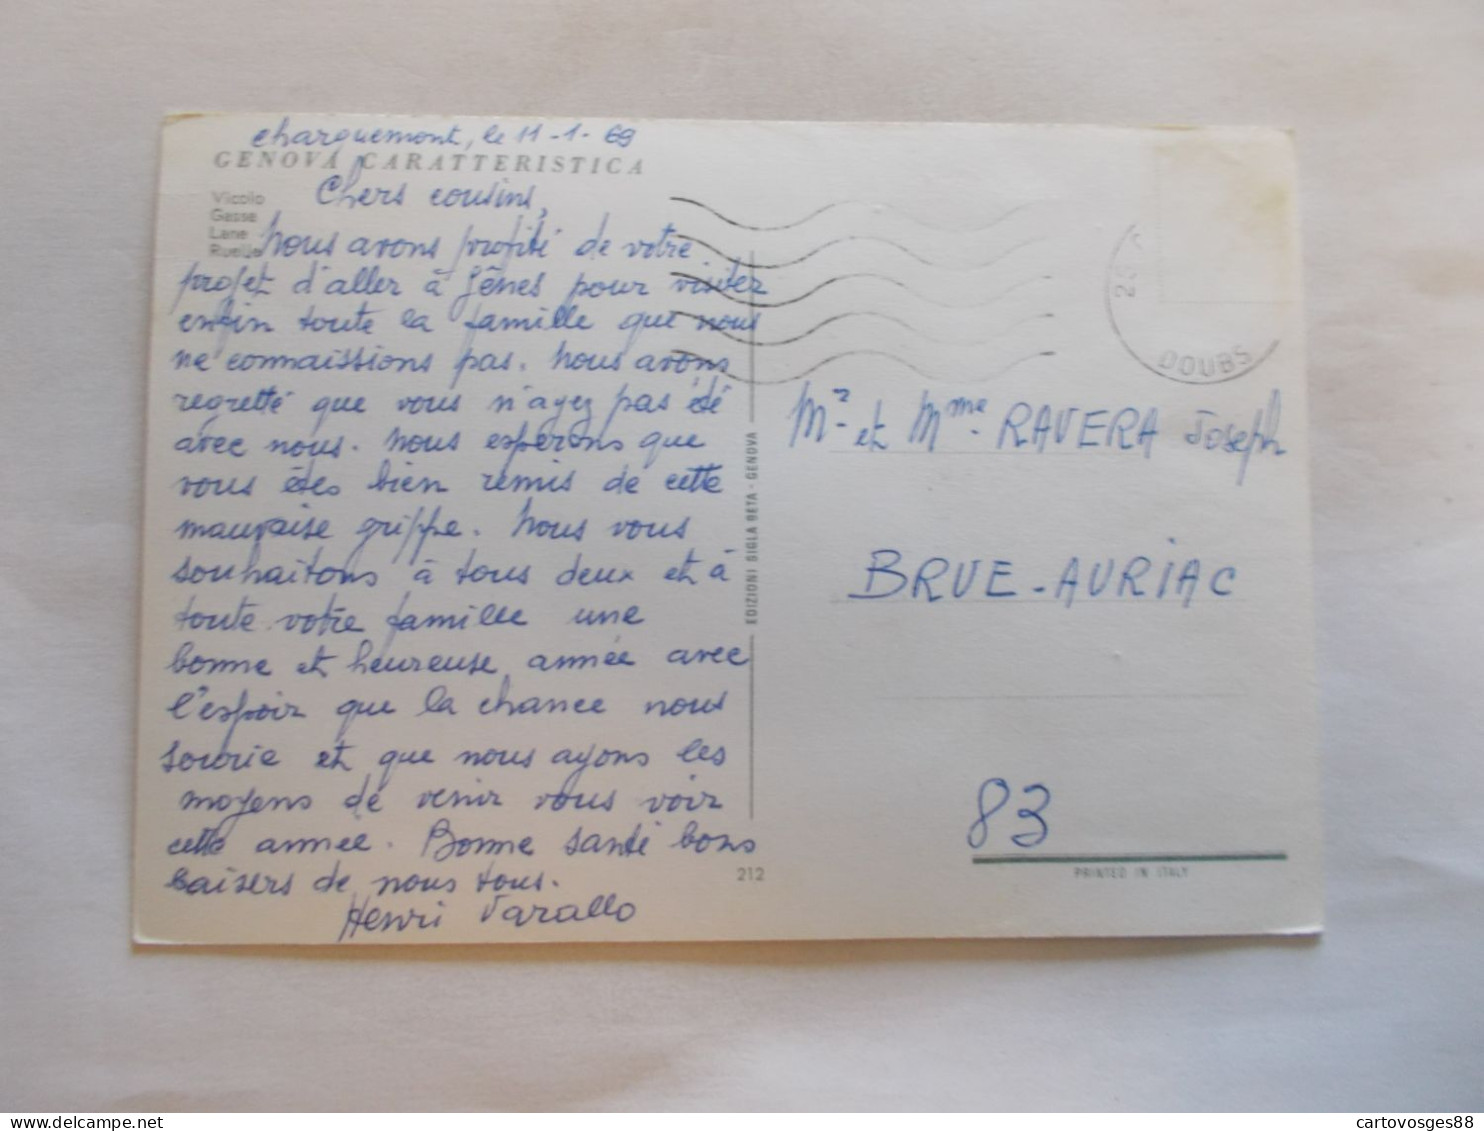 charquemont, le 11-1-69
GENOVA CARATTERISTICA
Vicolo
Gasse
Lane
Ruelle
Chers cousins,
Nous avons profité de votre
projet d'aller à Gênes pour visiter
enfin toute la famille que nous
ne connaissions pas. Nous avons
regretté que vous n'ayez pas été
avec nous. Nous esperons que
vous êtes bien remis de cette
mauvaise grippe. Nous vous
souhaitons à tous deux et à
toute votre famille une
bonne et heureuse année avec
l'espoir que la chance nous
sourie et que nous ayons les
moyens de venir vous voir
cette année. Bonne santé bons
baisers de nous tous.
Henri Varallo
212
EDIZIONI SIGLA BETA - GENOVA
25
DOUBS
Mr. et Mme. RAVERA Joseph
BRUE-AURIAC
83
PRINTED IN ITALY
cartovosges88